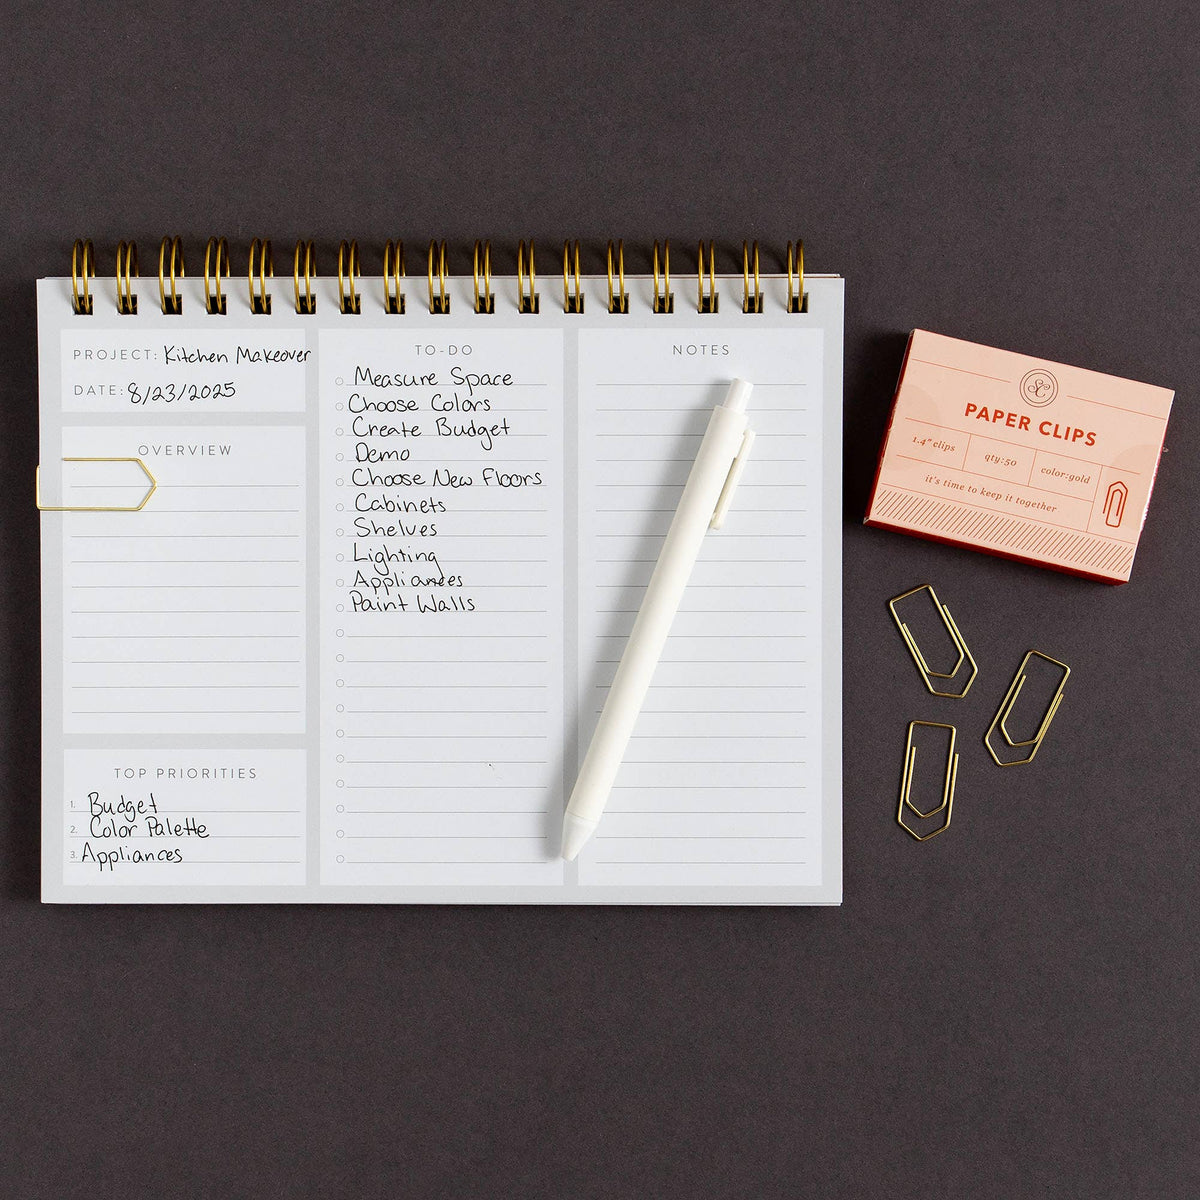 PROJECT: Kitchen Makeover
DATE: 8/23/2025
OVERVIEW
TOP PRIORITIES
1. Budget
2. Color Palette
3. Appliances
TO-DO
Measure Space
Choose Colors
Create Budget
Demo
Choose New Floors
Cabinets
Shelves
Lighting
Appliances
Paint Walls
NOTES
SC
PAPER CLIPS
1.4" clips
qty:50
color:gold
it's time to keep it together